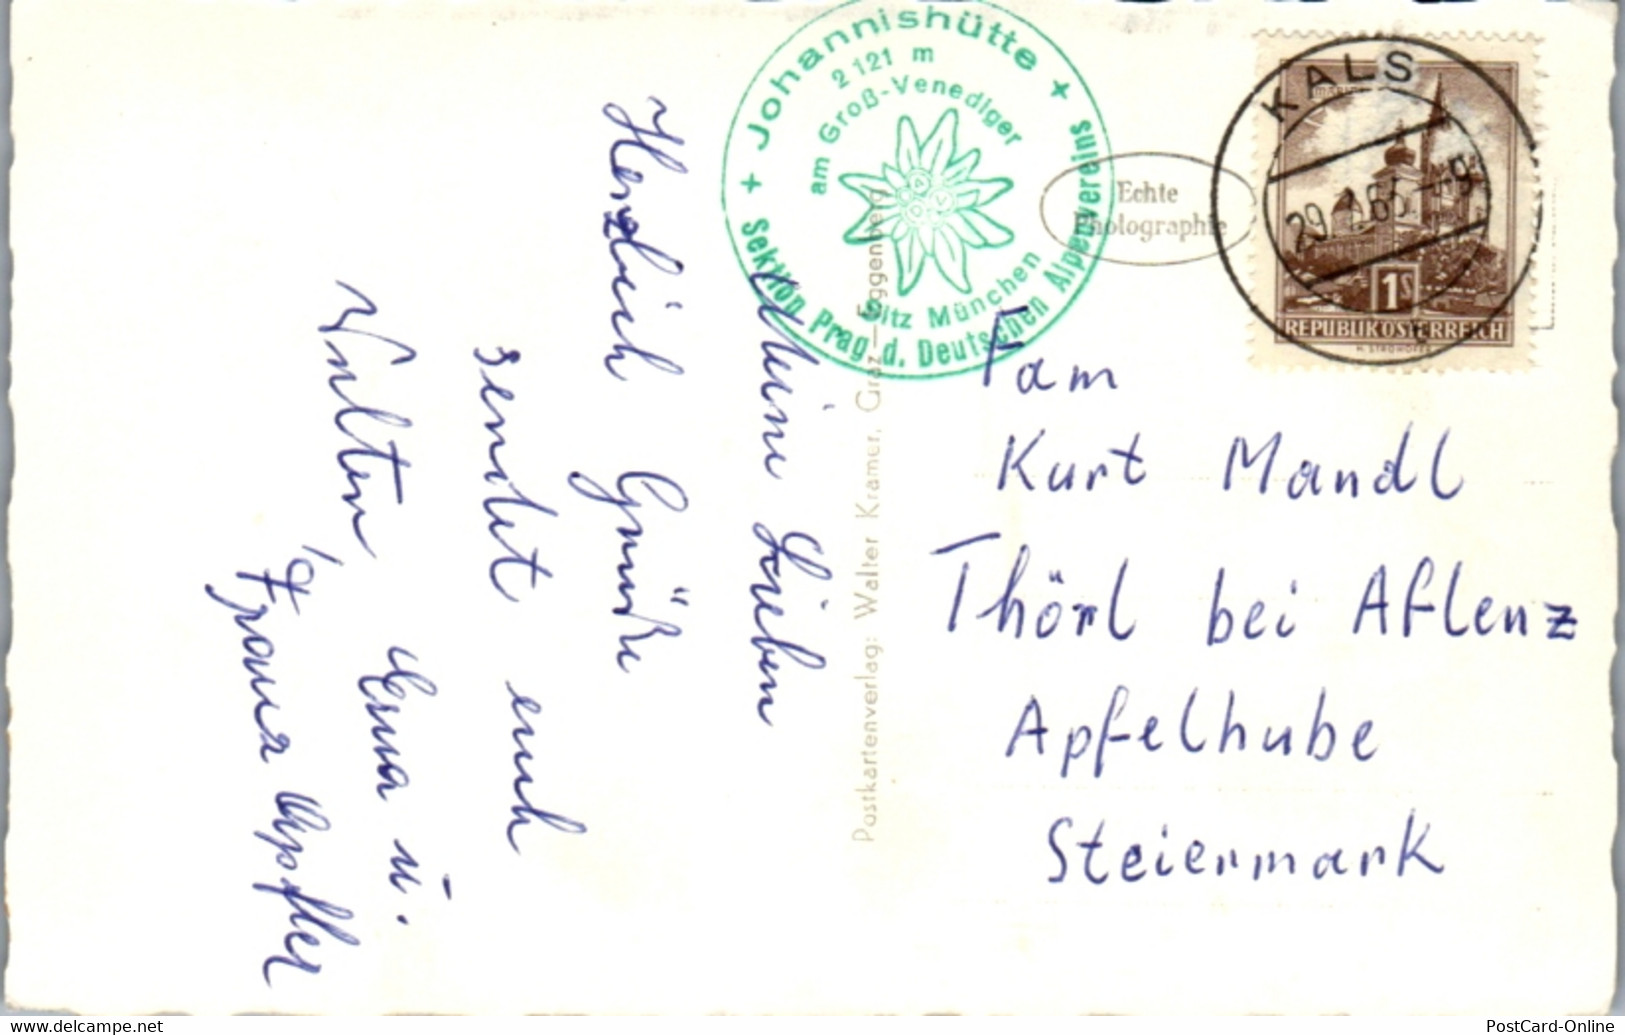 + Johannishütte +
2121 m
am Groß-Venediger
Sitz München
Sektion Prag d. Deutschen Alpenvereins
Echte
Photographie
KALS
29.
65.
1S
REPUBLIK ÖSTERREICH
Meine Lieben
Herzlich Grüße
sendet euch
Walter,
Erna u.
Franz Apfler
Postkartenverlag: Walter Kramer, Graz—Eggenberg
Fam
Kurt Mandl
Thörl bei Aflenz
Apfelhube
Steiermark
PostCard-Online.delcampe.net
PostCard-Online